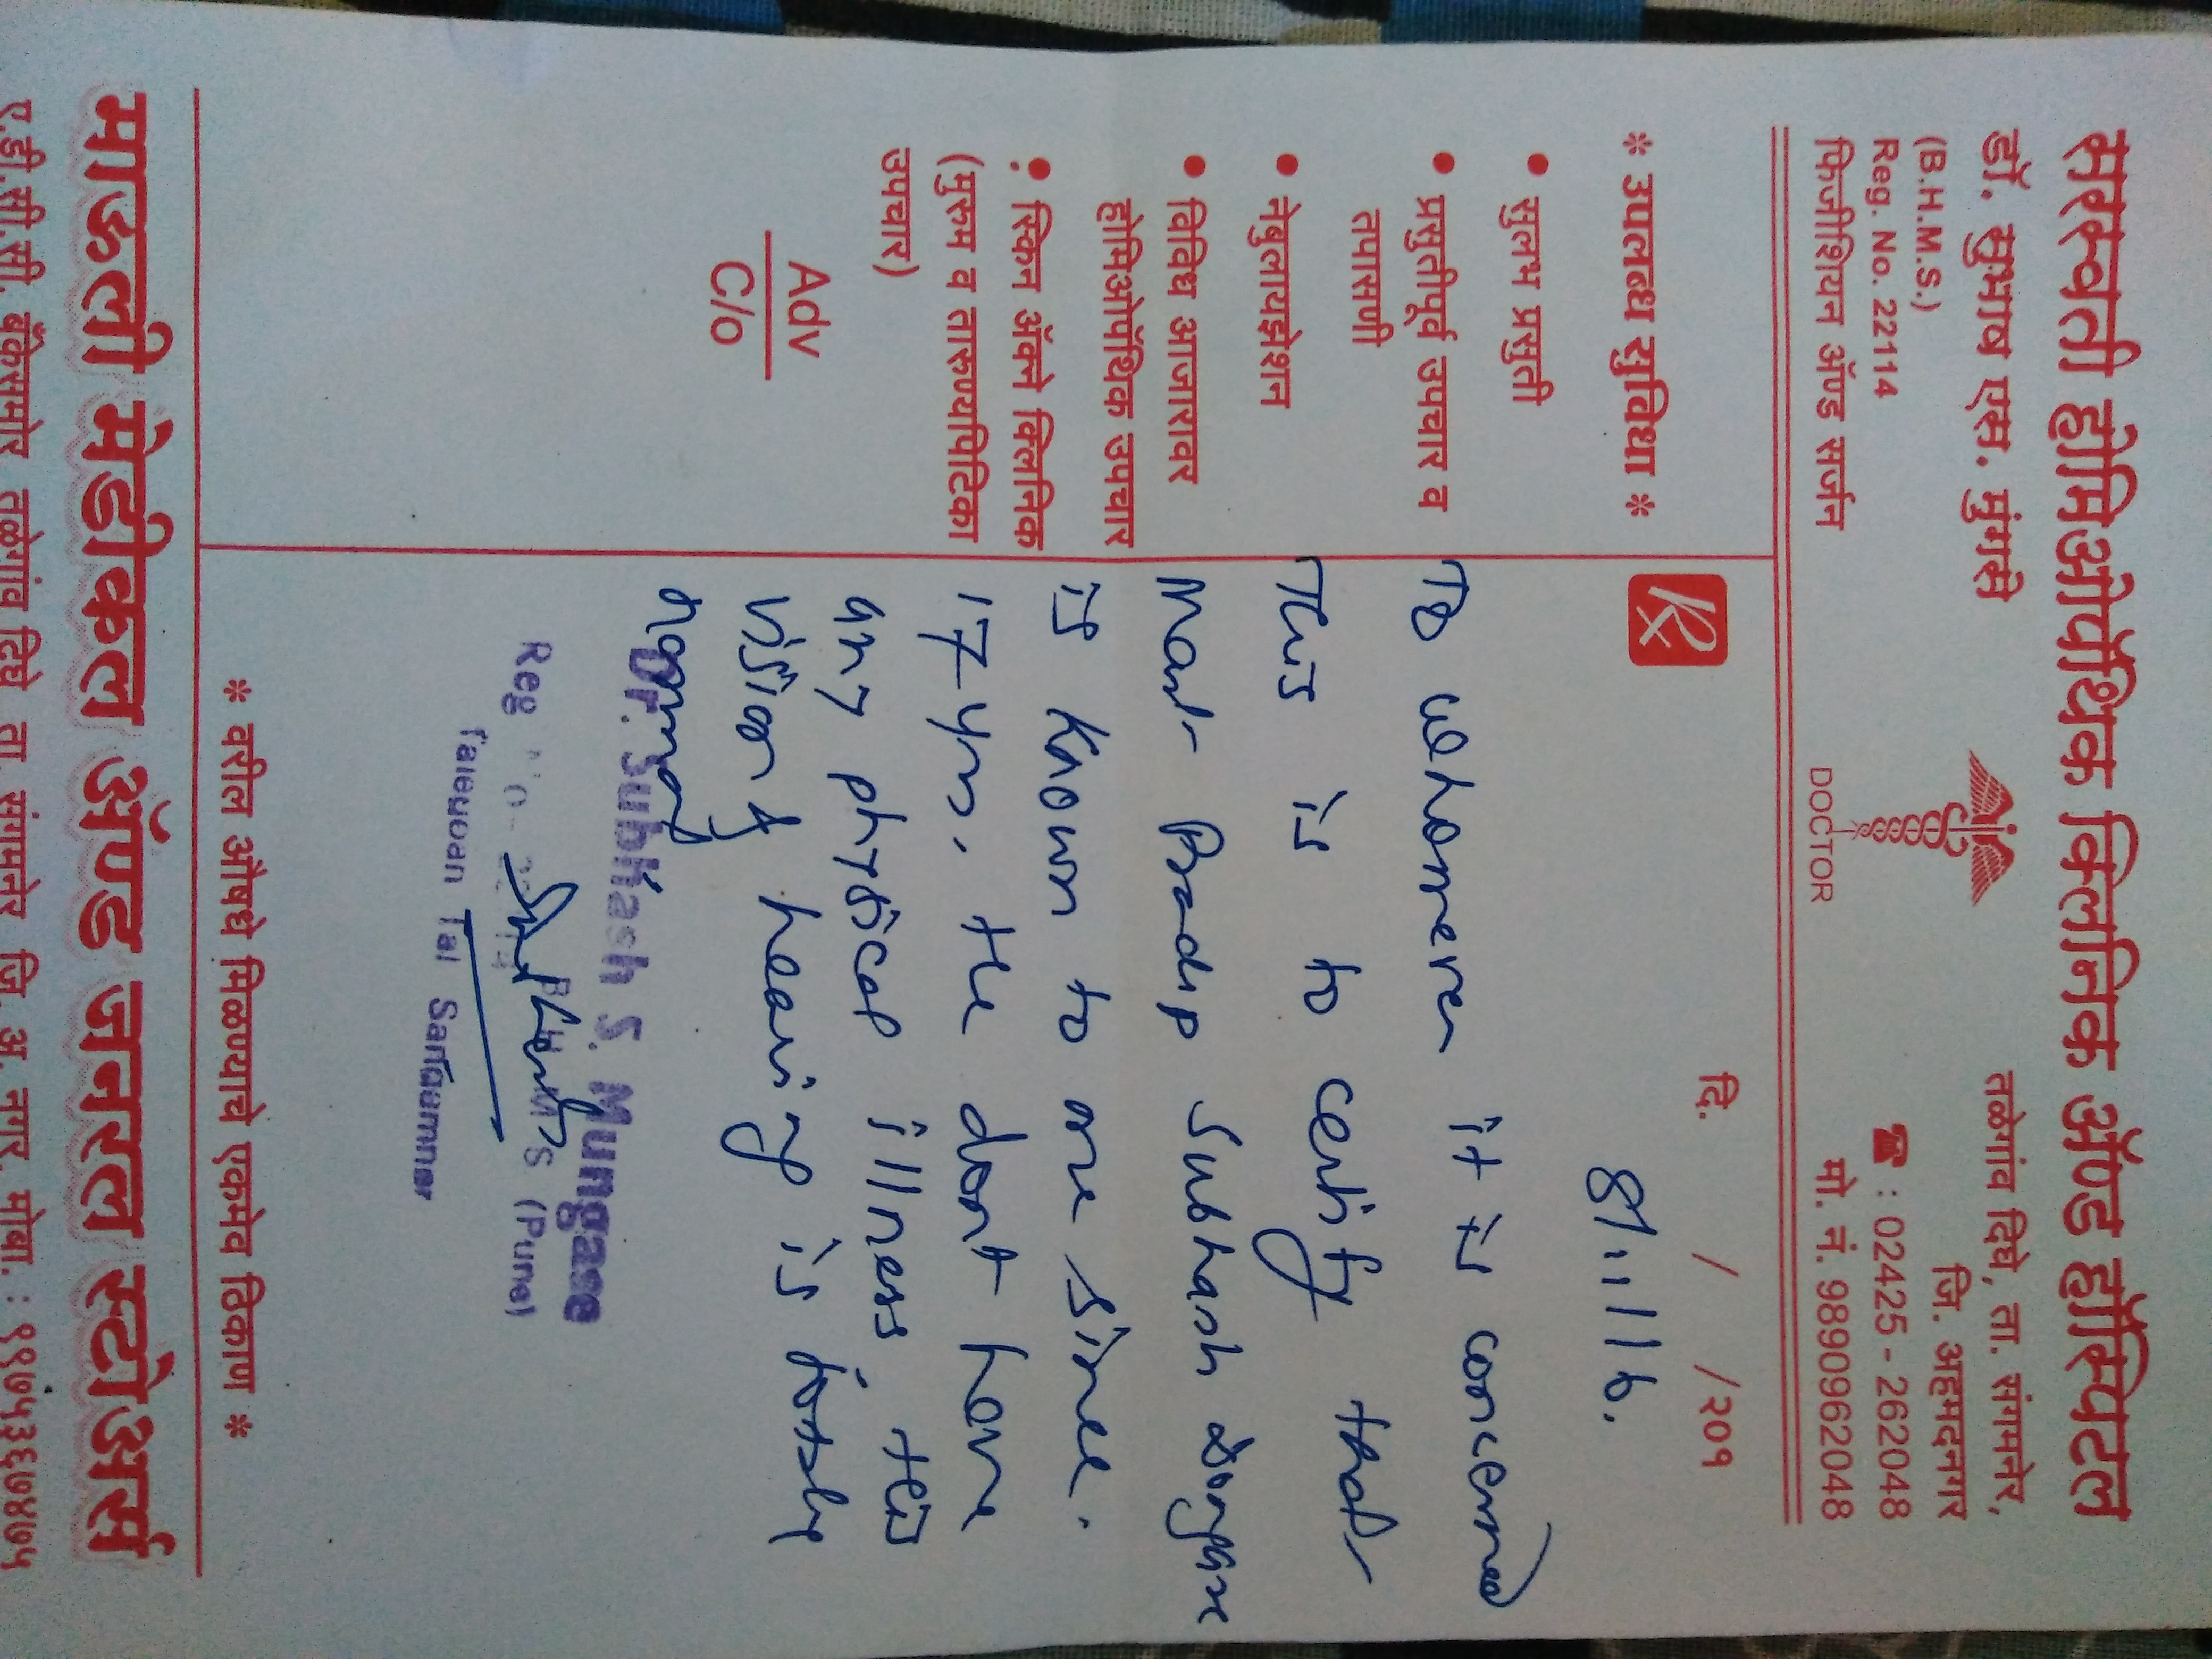 सरस्वती होमिओपॅथिक क्लिनिक ॲण्ड हॉस्पिटल
डॉ. सुभाष एस. मुंगसे
(B.H.M.S.)
Reg. No. 22114
फिजीशियन ॲण्ड सर्जन
DOCTOR
तळेगांव दिघे, ता. संगमनेर,
जि. अहमदनगर
☎ : 02425 - 262048
मो. नं. 9890962048
* उपलब्ध सुविधा *
• सुलभ प्रसुती
• प्रसुतीपूर्व उपचार व
तपासणी
• नेबुलायझेशन
• विविध आजारावर
होमिओपॅथिक उपचार
• स्किन ॲक्ने क्लिनिक
(मुरुम व तारुण्यापिटिका
उपचार)
Adv
C/o
दि. / /२०१
8/11/16.
Rx
To whomever it is concerned
This is to certify that
Mast- Pradip Subhash
is known to me since.
17 yrs. He dont have
any physical illness
vision & hearing is totaly
normal
Dr. Subhash S. Mungase
Reg No - 22114 B.H.M.S (Pune)
Talegoan Tal Sangamner
* वरील औषधे मिळण्याचे एकमेव ठिकाण *
माऊली मेडीकल ॲण्ड जनरल स्टोअर्स
ए.डी.सी.सी. बँकेसमोर तळेगांव दिघे ता. संगमनेर जि. अ. नगर. मोबा. : ९९७५३६७४७५